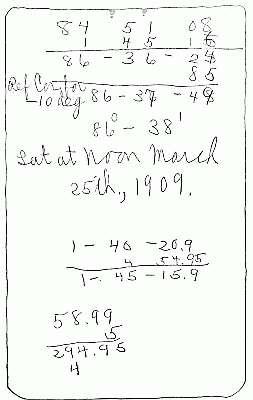 84 51 08
1 45 16
86 - 36 - 24
85
Ref Cor for
-10 deg 86 - 37 - 49
86° - 38'
Lat at Noon March
25th, 1909.
1 - 40 - 20.9
4 54.95
1 - 45 - 15.9
58.99
5
294.95
4